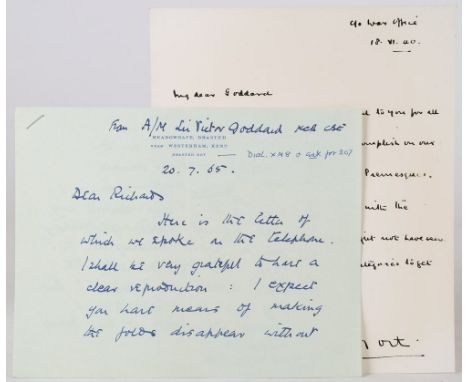 c/o War Office
18. XI. 40.
My dear Goddard
d to you for all
complish on our
Premesques.
with the
get not have seen
to get
ort
From A/M Sir Victor Goddard KCB CBE
MEADOWGATE, BRASTED
NEAR WESTERHAM, KENT
BRASTED 207 — Dial x & ask for 207
20.7.65.
Dear Richards
Here is the letter of
which we spoke on the telephone.
I shall be very grateful to have a
clear reproduction : I expect
you have means of making
the folds disappear without